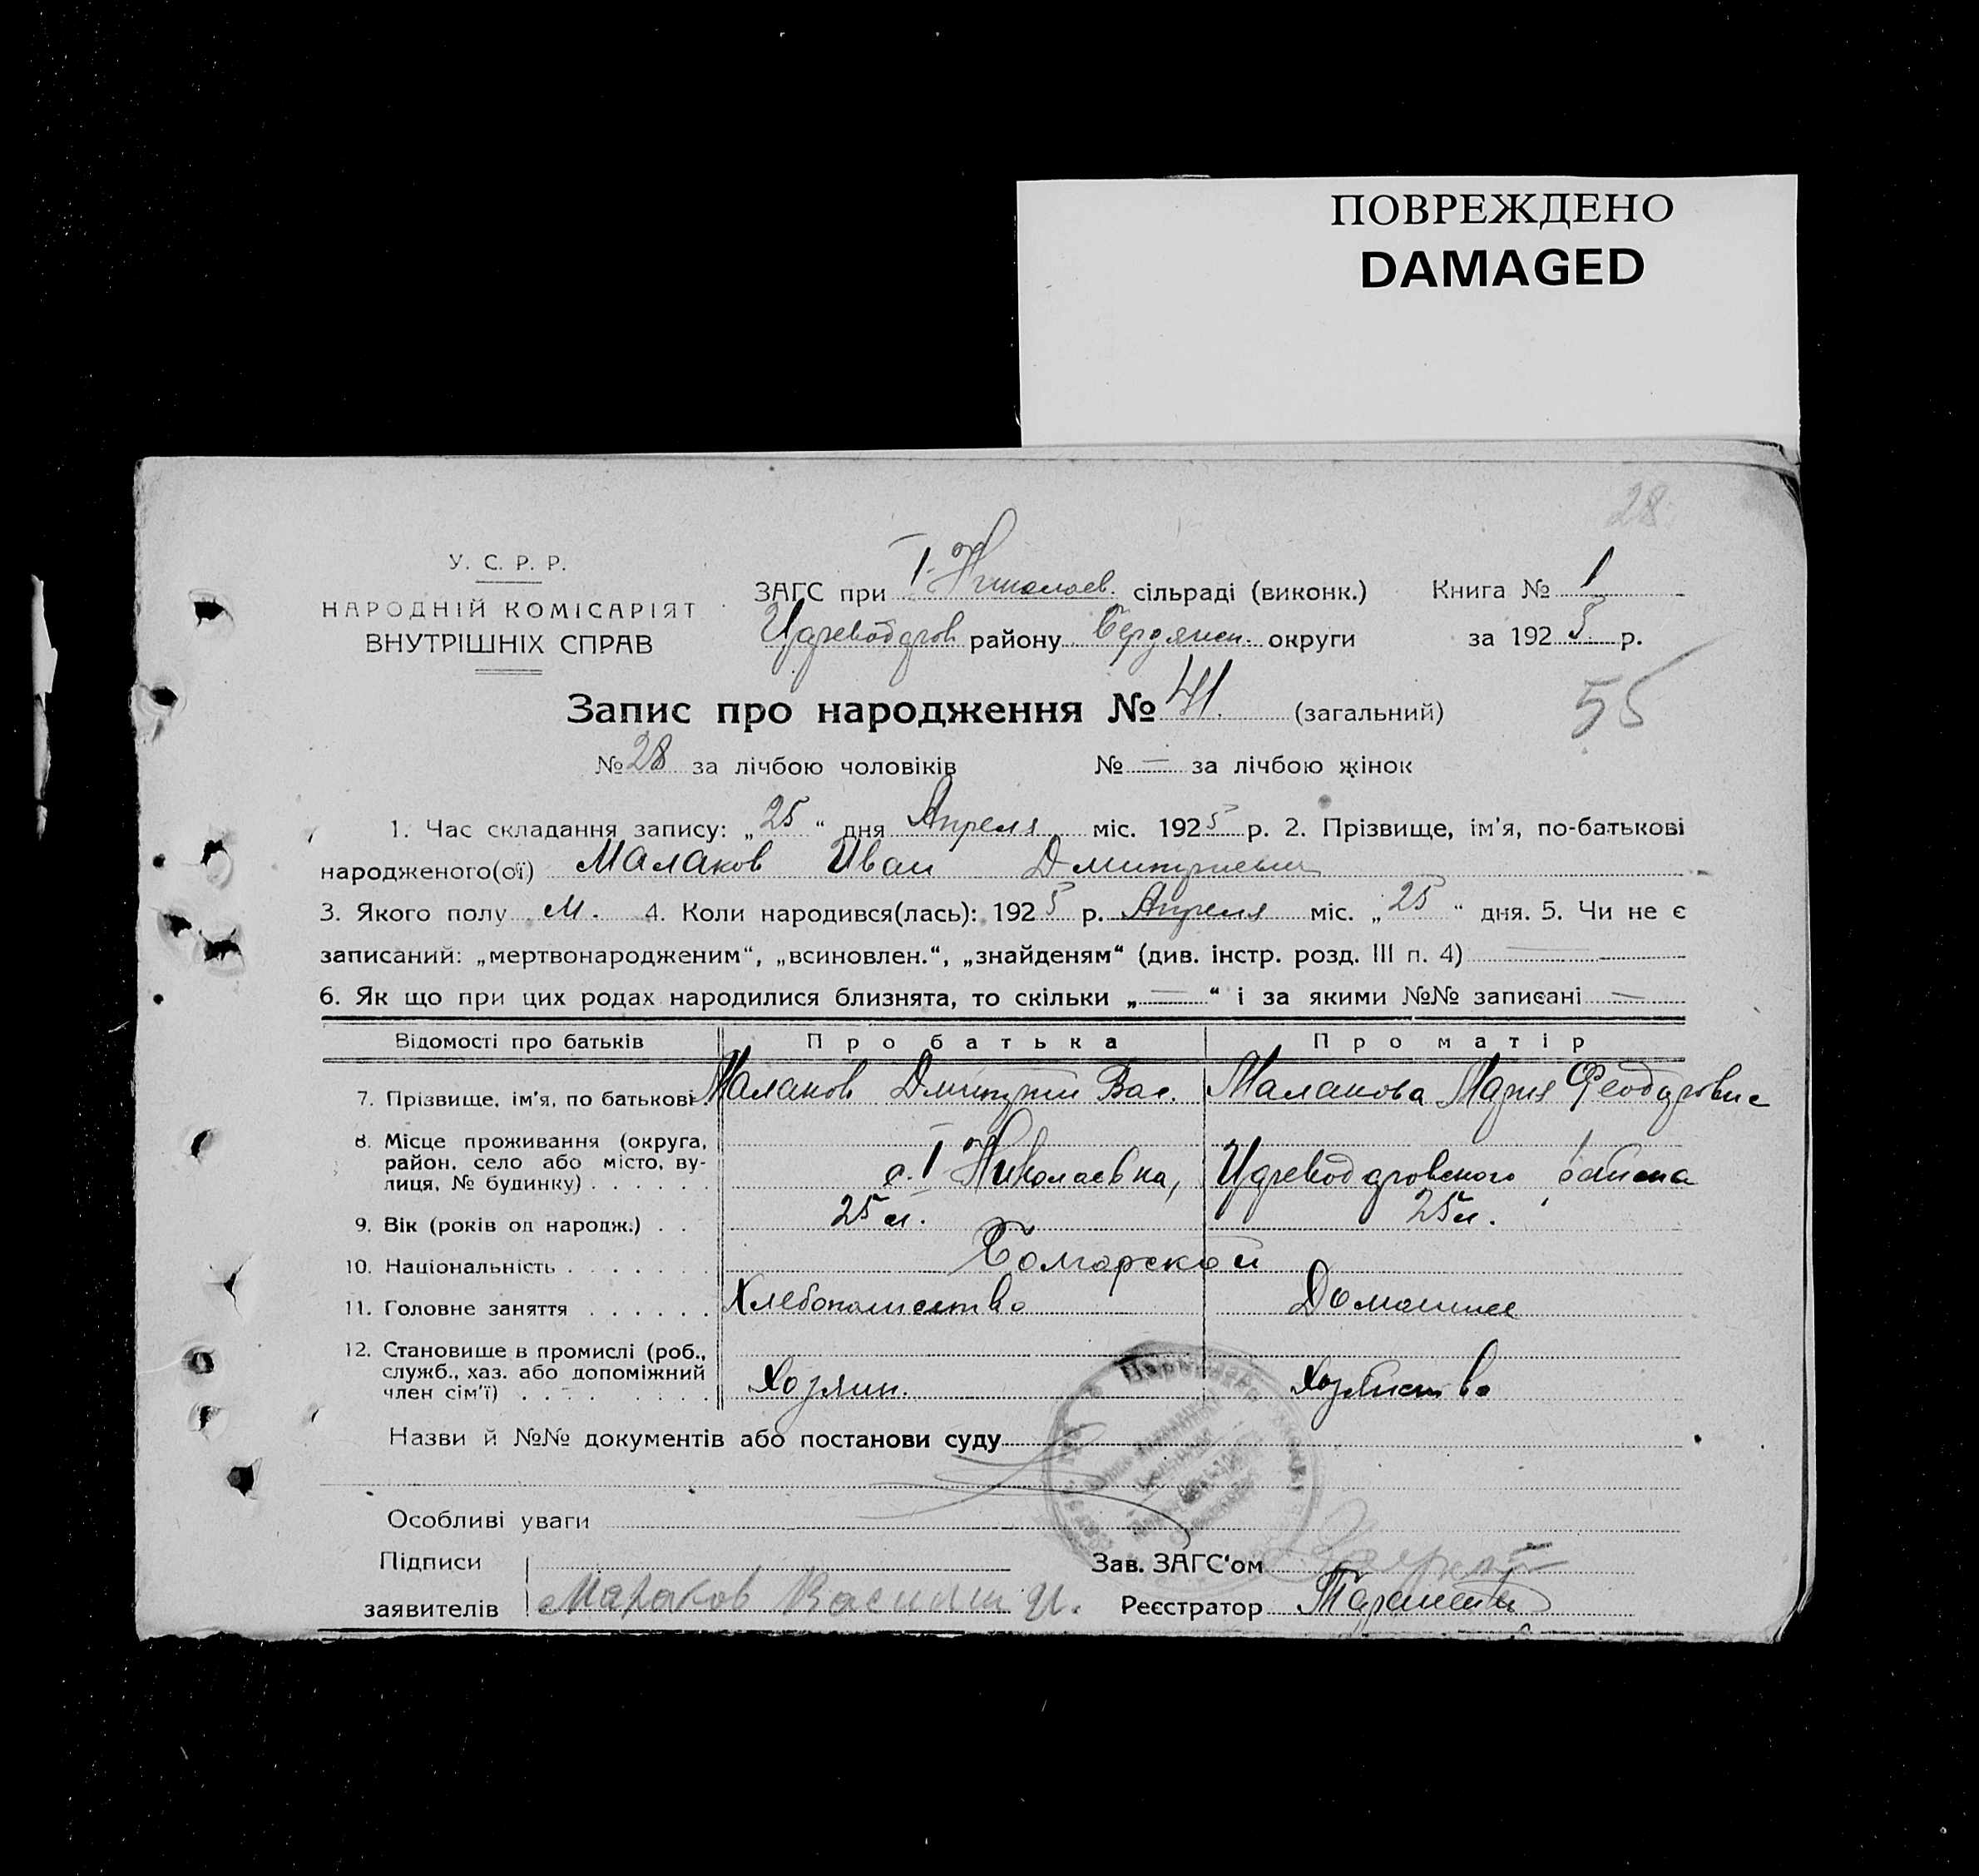 ПОВРЕЖДЕНО
DAMAGED
28
У. С. Р. Р.
НАРОДНІЙ КОМІСАРІЯТ
ВНУТРІШНІХ СПРАВ
ЗАГС при I Николаев. сільраді (виконк.) Книга № 1
Цареводаров району Бердянск. округи за 1925 р.
Запис про народження № 41. (загальний)
55
№ 28 за лічбою чоловіків № — за лічбою жінок
1. Час складання запису: „25“ дня Апреля міс. 1925 р. 2. Прізвище, ім'я, по-батькові
народженого(ої) Малаков Иван Дмитриевич
3. Якого полу М. 4. Коли народився(лась): 1925 р. Апреля міс. „25“ дня. 5. Чи не є
записаний: „мертвонародженим“, „всиновлен.“, „знайденям“ (див. інстр. розд. III п. 4) —
6. Як що при цих родах народилися близнята, то скільки „—“ і за якими №№ записані —
Відомості про батьків Про батька Про матір
7. Прізвище, ім'я, по батькові Малаков Дмитрий Вас. Малакова Мария Феодоровне
8. Місце проживання (округа,
район, село або місто, ву-
лиця, № будинку) . . . . . . с. I Николаевка, Цареводаровского района
9. Вік (років од народж.) . . 25 л. 25 л.
10. Національність . . . . . . . Болгарской
11. Головне заняття . . . . . . Хлебопашество Домашнее
12. Становище в промислі (роб.,
служб., хаз. або допоміжний
член сім'ї) . . . . . . . . Хозяин. Хозяйство
Назви й №№ документів або постанови суду
Особливі уваги
Підписи Зав. ЗАГС'ом
заявителів Малаков Василий И. Реєстратор